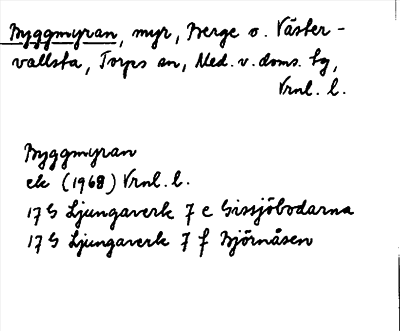 Byggmyran, myr, Berge o. Väster-
vallsta, Torps sn, Med. v. doms. tg,
Vrnl. l.
Byggmyran
ek (1968) Vrnl. l.
17 G Ljungaverk 7 e Gissjöbodarna
17 G Ljungaverk 7 f Björnåsen